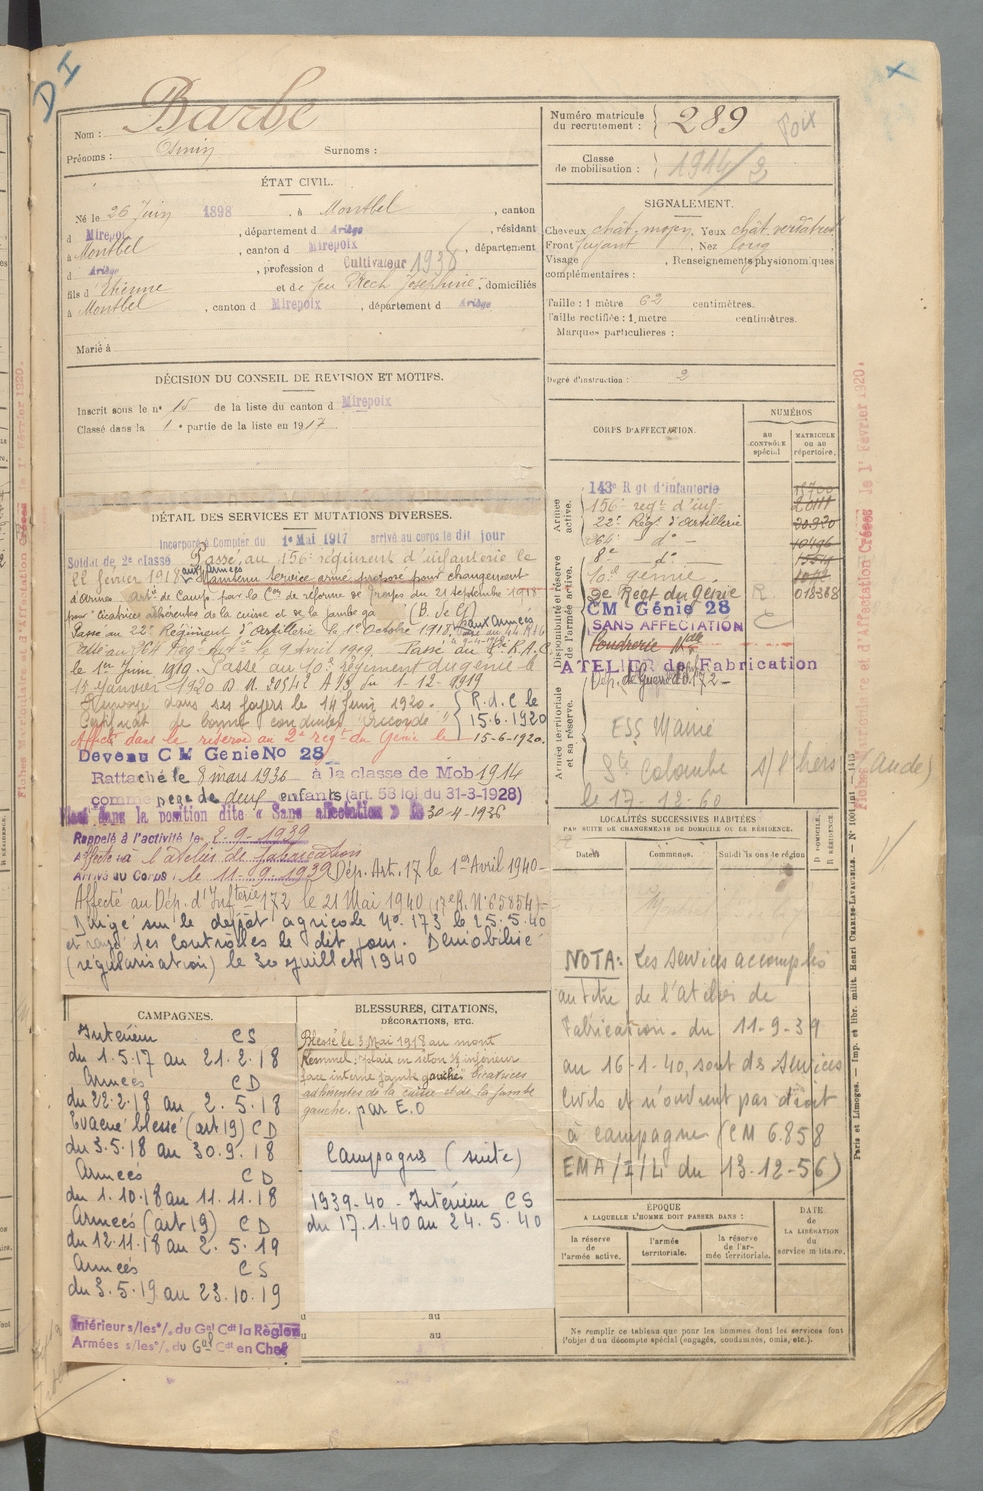 D I
Barbe
Nom :
Prénoms : Surnoms :
Numéro matricule du recrutement : 289
Foix
Classe de mobilisation : 1914/2
ÉTAT CIVIL.
Né le 26 Juin 1898, à Montbel, canton
d Mirepoix, département d Ariège, résidant
à Montbel, canton d Mirepoix, département
d Ariège, profession d Cultivateur 1936
fils d'Etienne et de feu Rech Joséphine, domiciliés
à Montbel, canton d Mirepoix, département d Ariège
Marié à
SIGNALEMENT.
Cheveux chât. moyen. Yeux chât. verdâtres
Front fuyant, Nez long
Visage , Renseignements physionomiques
complémentaires :
Taille : 1 mètre 62 centimètres.
Taille rectifiée : 1 mètre centimètres.
Marques particulières :
Degré d'instruction : 2
DÉCISION DU CONSEIL DE REVISION ET MOTIFS.
Inscrit sous le n° 15 de la liste du canton d Mirepoix
Classé dans la 1e partie de la liste en 1917
CORPS D'AFFECTATION.
NUMÉROS
AU CONTRÔLE spécial
MATRICULE OU AU répertoire.
Armée active.
143e Rgt d'infanterie
156e régt d'inf
22e Régt d'artillerie
364e do -
8e do
Disponibilité et réserve de l'armée active.
10e génie.
2e Regt du Génie 013368
CM Génie 28
SANS AFFECTATION
R
C
Poudrerie Nale
ATELIER de Fabrication
Armée territoriale et sa réserve.
Dép. de Guerre d'Inf. 172-
ESS Mairie
Ste Colombe s/l'hers (Aude)
le 17-12-60
DÉTAIL DES SERVICES ET MUTATIONS DIVERSES.
Incorporé à compter du 1er Mai 1917 arrivé au corps le dit jour
Soldat de 2e classe Passé au 156e régiment d'infanterie le
22 fevrier 1918 aux Armées Maintenu service armé proposé pour changement
d'Arme. Artie de Camp. par la Con de réforme de Troyes du 21 septembre 1918
pour "cicatrices adhérentes de la cuisse et de la jambe ga (B. de G)
Passé au 22e Régiment d'Artillerie le 1er Octobre 1918, aux Armées
Passé au 364 Reg le 9 Avril 1919. Passé au 8e R.A.C
le 1er Juin 1919. Passé au 10e régiment du génie le
15 Janvier 1920 D.M. 20542 A 1/3 du 1-12-1919
Renvoyé dans ses foyers le 14 Juin 1920.
Certificat de bonne conduite "accordé" R.d.C le 15.6.1920
Affecté dans la réserve au 2e regt du Génie le 15-6-1920.
Devenu C M Génie No 28
Rattaché le 8 mars 1936 à la classe de Mob 1914
comme père de deux enfants (art. 58 loi du 31-3-1928)
Placé dans la position dite « Sans affectation » le 30-4-1936
Rappelé à l'activité le 2-9-1939
Affecté à l'atelier de fabrication
Arrivé au Corps, le 11-9-1939 Dép. Art. 17 le 1er Avril 1940-
Affecté au Dép. d'Infterie 172 le 21 Mai 1940 (17e R. N° 65854)-
Dirigé sur le dépôt agricole N° 173 le 25.5.40
et rayé des contrôles le dit jour. Démobilisé
(régularisation) le 30 Juillet 1940
LOCALITÉS SUCCESSIVES HABITÉES
PAR SUITE DE CHANGEMENTS DE DOMICILE OU DE RÉSIDENCE.
Dates
Communes.
Subdivisions de région
D. DOMICILE.
R. RÉSIDENCE.
NOTA: Les services accomplis
au titre de l'Atelier de
Fabrication. du 11-9-39
au 16-1-40, sont des services
civils et n'ouvrent pas droit
à campagne (CM 6.858
EMA/I/L du 13-12-56)
CAMPAGNES.
Intérieur CS
du 1.5.17 au 21.2.18
Armées CD
du 22.2.18 au 2.5.18
Evacué blessé (art 19) CD
du 3.5.18 au 30.9.18
Armées CD
du 1.10.18 au 11.11.18
Armées (art 19) CD
du 12.11.18 au 2.5.19
Armées CS
du 3.5.19 au 23.10.19
Intérieur s/les °/. du Gal Cdt la Région
Armées s/les °/. du Gal Cdt en Chef
BLESSURES, CITATIONS,
DÉCORATIONS, ETC.
Blessé le 3 Mai 1918 au mont
Kemmel: plaie en séton 1/3 inférieur
face interne jambe gauche. Cicatrices
adhérentes de la cuisse et de la jambe
gauche. par E.O
Campagnes (suite)
1939-40 - Intérieur CS
du 17.1.40 au 24.5.40
au
au
ÉPOQUE
A LAQUELLE L'HOMME DOIT PASSER DANS :
la réserve de l'armée active.
l'armée territoriale.
la réserve de l'armée territoriale.
DATE de LA LIBÉRATION du service militaire.
Ne remplir ce tableau que pour les hommes dont les services font
l'objet d'un décompte spécial (engagés, condamnés, omis, etc.).
Paris et Limoges. — Imp. et libr. milit. Henri CHARLES-LAVAUZELLE.
Fiches Matricule et d'Affectation Créées le 1er Février 1920.